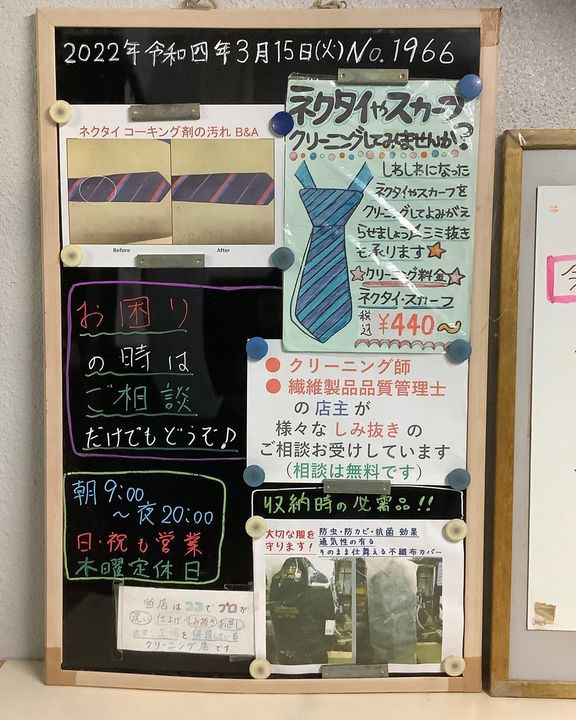 2022年令和四年3月15日(火)No.1966
ネクタイ コーキング剤の汚れ B&A
Before
After
ネクタイやスカーフ
クリーニングしてみませんか?
しわしわになった
ネクタイやスカーフを
クリーニングしてよみがえ
らせましょう シミ抜き
も承ります
クリーニング料金
ネクタイ・スカーフ
税込 ¥440～
お困り
の時は
ご相談
だけでもどうぞ♪
● クリーニング師
● 繊維製品品質管理士
の 店主 が
様々な しみ抜き の
ご相談お受けしています
(相談は無料です)
朝9:00
～夜20:00
日・祝も営業
木曜定休日
収納時の必需品!!
大切な服を
守ります!
防虫・防カビ・抗菌 効果
通気性の有る
そのまま仕舞える不織布カバー
当店はココでプロが
洗い 仕上げ しみ抜き お直し
工場を併設している
クリーニング店です